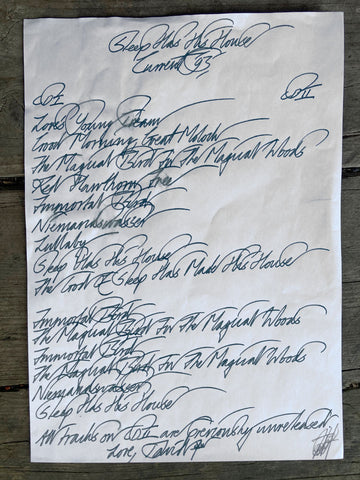 Sleep Has His House
Current 93,
CDI CDII
Love's Young Dream
Good Morning, Great Moloch
The Magical Bird In The Magical Woods
Red Hawthorn Tree
Immortal Bird
Niemandswasser
Lullaby
Sleep Has His House
The God Of Sleep Has Made His House
Immortal Bird
The Magical Bird In The Magical Woods
Immortal Bird
The Magical Bird In The Magical Woods
Niemandswasser
Sleep Has His House
All Tracks on CDII are previously unreleased
Love, David